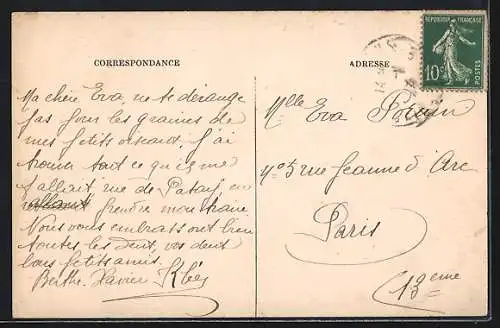 CORRESPONDANCE
Ma chère Eva, ne te dérange
pas pour les graines de
mes petits oiseaux, j'ai
trouvé tout ce qu'il me
fallait rue de Patay, en
allant prendre mon train
Nous vous embrassons bien
toutes les deux, vos deux
bons petits amis.
Berthe. Xavier
ADRESSE
REPUBLIQUE FRANÇAISE
10c
POSTES
Mlle Eva
No 5 rue Jeanne d'Arc
Paris
(13eme